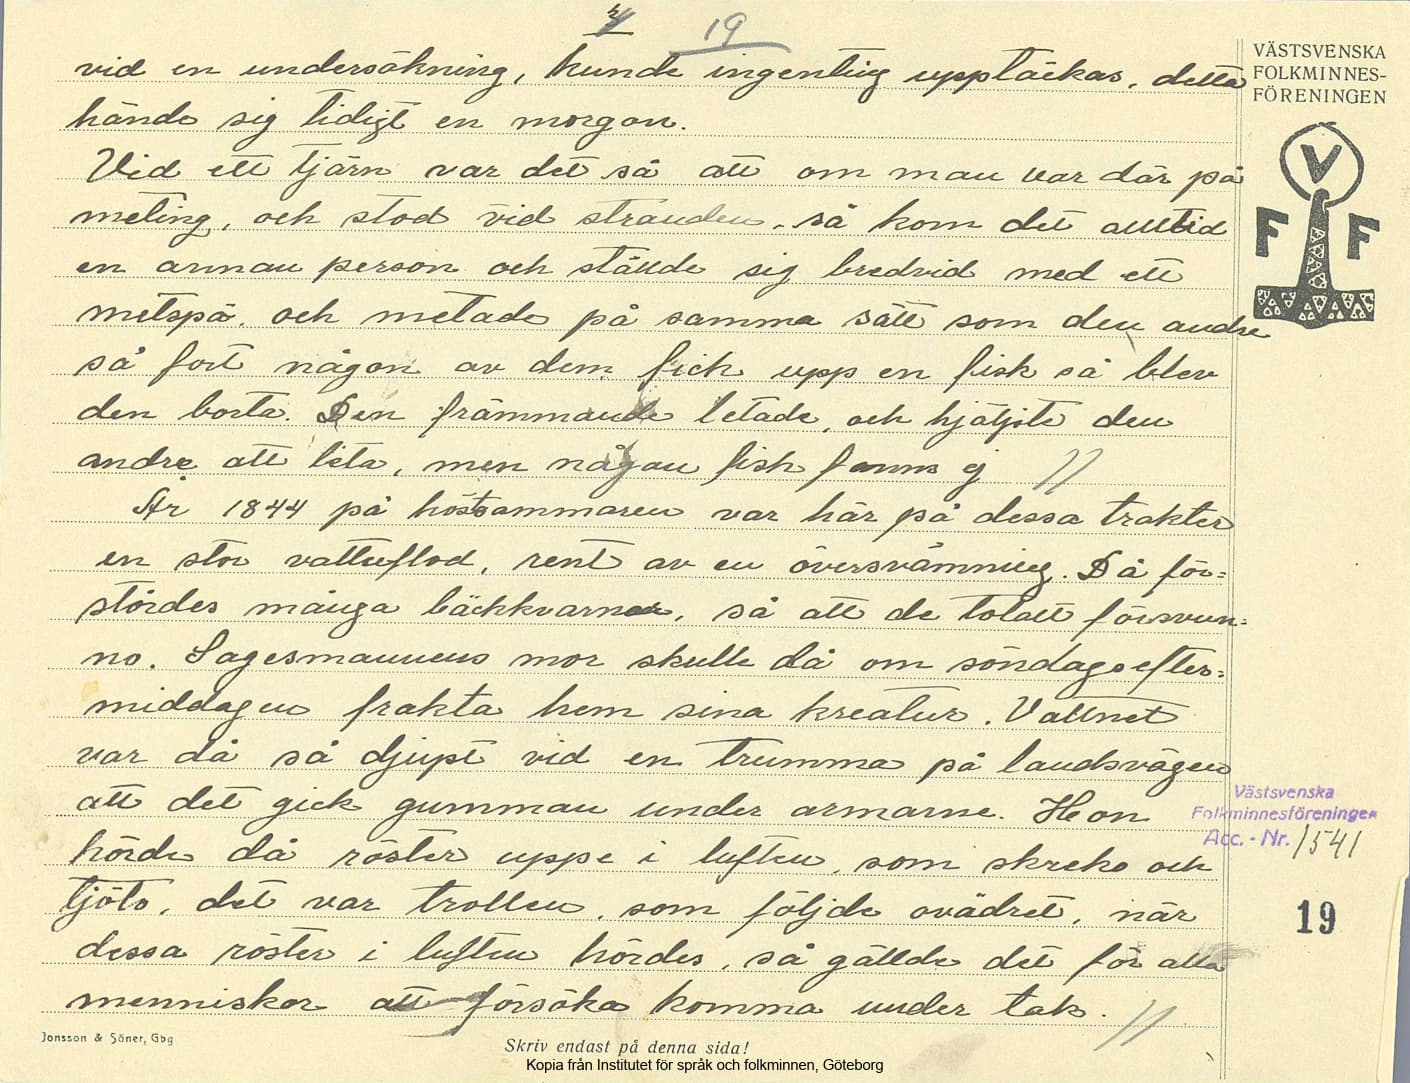 4 19
vid en undersökning, kunde ingenting upptäckas, detta
hände sig tidigt en morgon.
Vid ett tjärn var det så att om man var där på
meting, och stod vid stranden, så kom det alltid
en annan person och ställde sig bredvid med ett
metspö. och metade på samma sätt som den andre
så fort någon av dem fick upp en fisk så blev
den borta. Den främmande letade, och hjälpte den
andre att leta, men någon fisk fanns ej //
År 1844 på höstsammaren var här på dessa trakter
en stor vattuflod, rent av en översvämning. Då för=
stördes många bäckkvarnar, så att de totalt försvun=
no. Sagesmannens mor skulle då om söndagsefter=
middagen frakta hem sina kreatur. Vattnet
var då så djupt vid en trumma på landsvägen
att det gick gumman under armarne. Hon
hörde då röster uppe i luften, som skreko och
tjöto, det var trollen, som följde ovädret, när
dessa röster i luften hördes, så gällde det för alla
menniskor att försöka komma under tak. //
VÄSTSVENSKA
FOLKMINNES-
FÖRENINGEN
V
F F
Västsvenska
Folkminnesföreningen
Acc. - Nr. 1541
19
Jonsson & Söner, Gbg
Skriv endast på denna sida!
Kopia från Institutet för språk och folkminnen, Göteborg